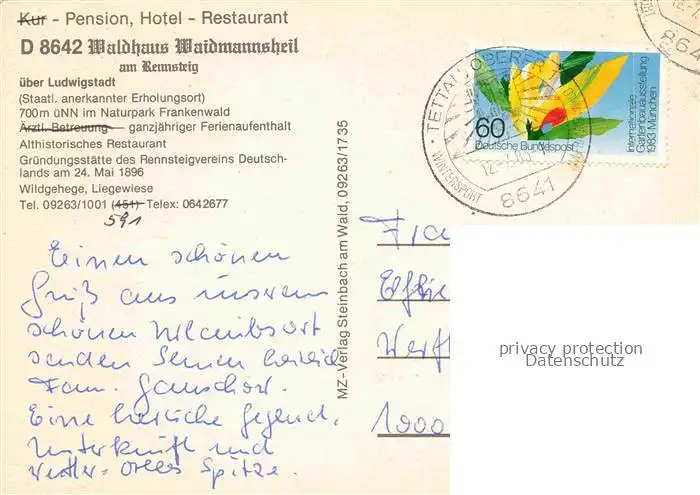 Kur - Pension, Hotel - Restaurant
D 8642 Waldhaus Waidmannsheil
am Rennsteig
über Ludwigstadt
(Staatl. anerkannter Erholungsort)
700m üNN im Naturpark Frankenwald
Ärztl. Betreuung ganzjähriger Ferienaufenthalt
Althistorisches Restaurant
Gründungsstätte des Rennsteigvereins Deutsch-
lands am 24. Mai 1896
Wildgehege, Liegewiese
Tel. 09263/1001 (451) Telex: 0642677
591
Einen schönen
Gruß aus unserem
schönen Urlaubsort
senden Ihnen
Fam.
Eine herrliche Gegend,
Unterkunft und
Wetter - alles Spitze.
MZ-Verlag Steinbach am Wald, 09263/1735
60
Deutsche Bundespost
Internationale
Gartenbauausstellung
1983 München
TETTAU, OBERFR 1
WINTERSPORT
8641
864
Elfrie
Werft
1000
privacy protection
Datenschutz